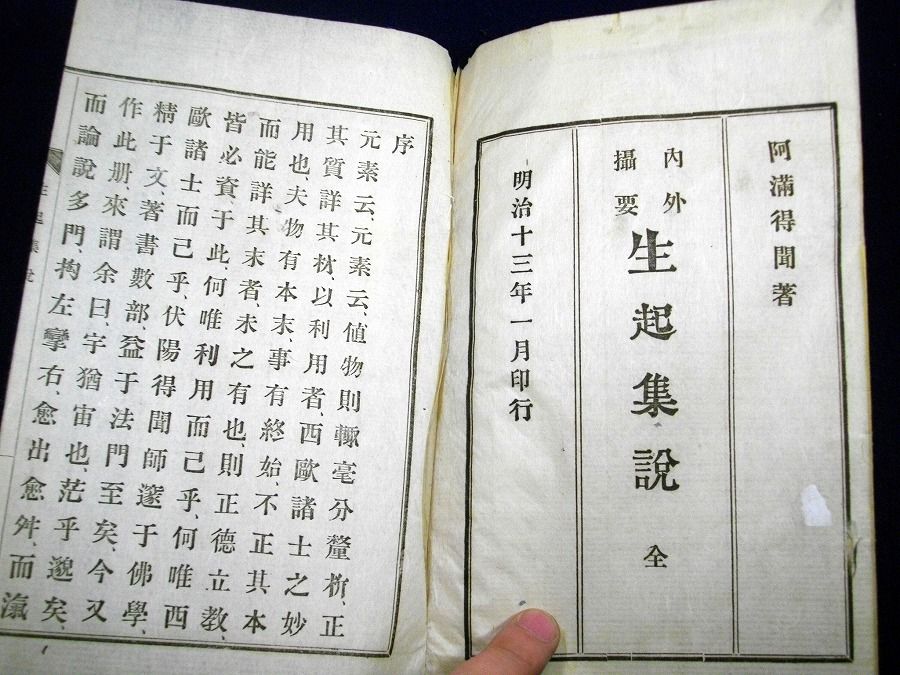 阿滿得聞著
內外
攝要
生起集說 全
明治十三年一月印行
序
元素云、元素云、値物則輙毫分釐析、正
其質詳其材、以利用者、西歐諸士之妙
用也、夫物有本末、事有終始、不正其本
而能詳其末者、未之有也、則正德立教、
皆必資于此、何唯利用而已乎、何唯西
歐諸士而己乎、伏陽得聞師邃于佛學、
精于文、著書數部、益于法門至矣、今又
作此册、來謂余曰、宇猶宙也、茫乎邈矣、
而論說多門、拘左攣右、愈出愈舛、而瀛
生起集說